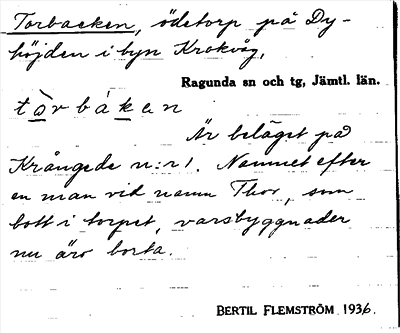 Torbacken, ödetorp på Dy-
höjden i byn Krokvåg,
Ragunda sn och tg, Jämtl. län.
tòrbákan
Är beläget på
Krångede n:r 1. Namnet efter
en man vid namn Thor, som
bott i torpet, varsbyggnader
nu äro borta.
BERTIL FLEMSTRÖM 1936.